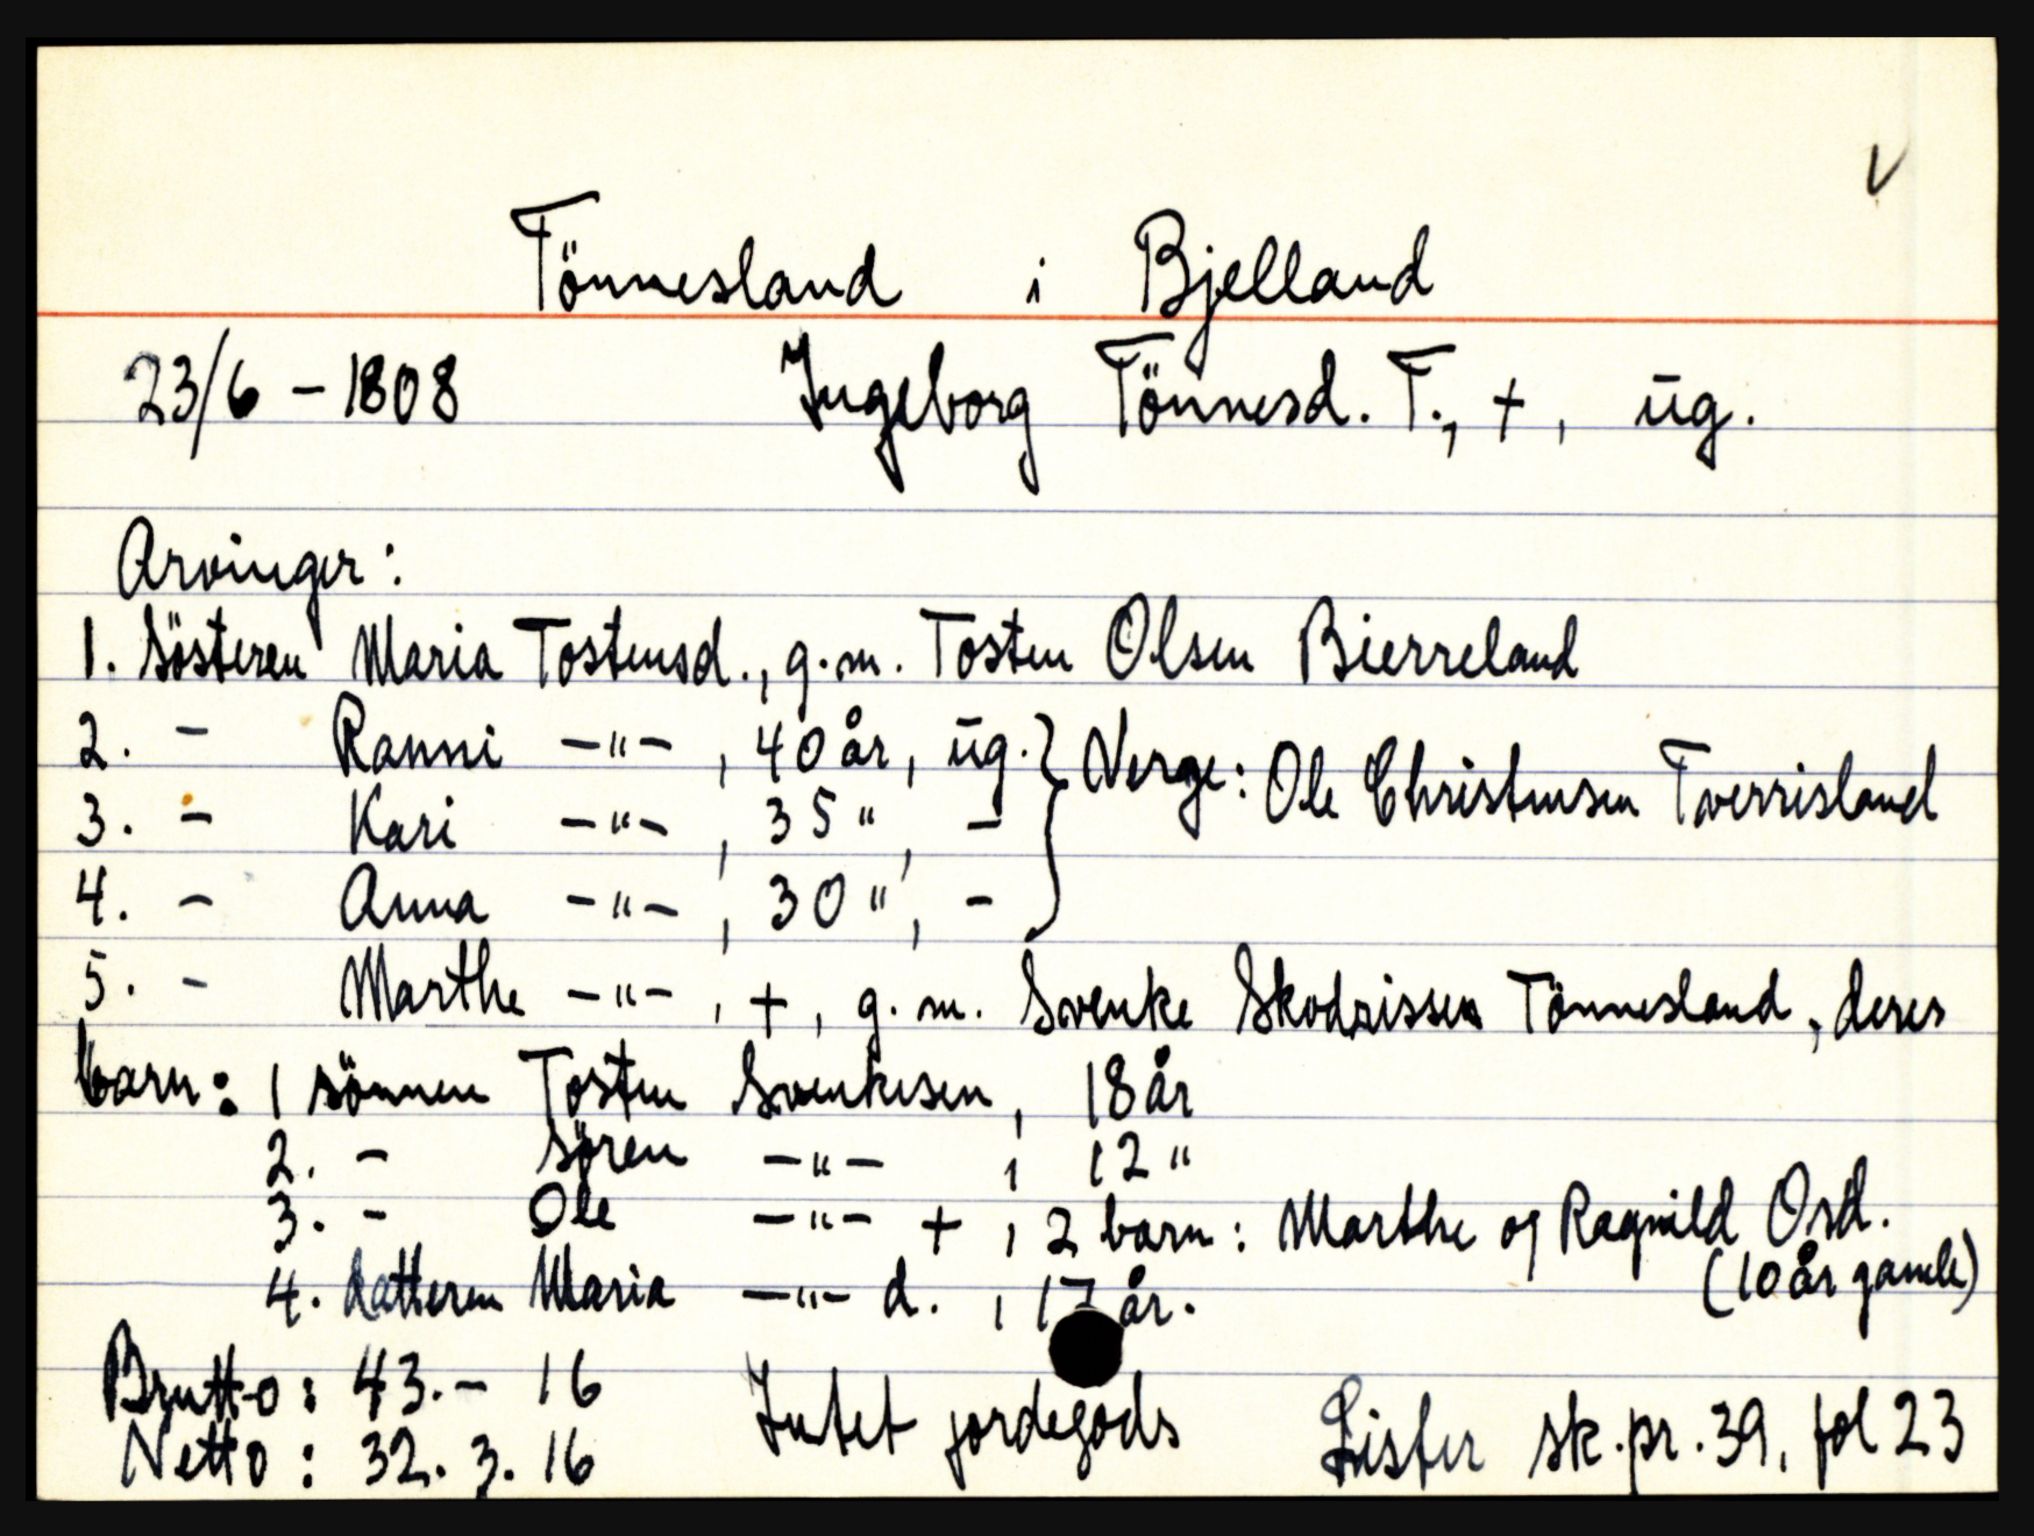 V
Tönnesland i Bjelland
23/6 - 1808 Ingeborg Tönnesd. T., +, ūg.
Arvinger:
1. Sösteren Maria Tostensd., g.m. Tosten Olsen Bierreland
2. - Ranni -"-, 40 år, ūg. } Verge: Ole Christensen Tverrisland
3. - Kari -"-, 35 ", -
4. - Anna -"-, 30 ", -
5. - Marthe -"-, +, g.m. Svenke Skodrissen Tönnesland, deres
barn: 1 sönnen Tosten Svenkesen, 18 år
2. - Sören -"-, 12 "
3. - Ole -"- +, 2 barn: Marthe og Ragnild Osd.
(10 år gamle)
4. datteren Maria -"- d., 17 år.
Brutto: 43.- 16 Intet jordegods Lister sk.pr. 39, fol 23
Netto: 32. 3. 16